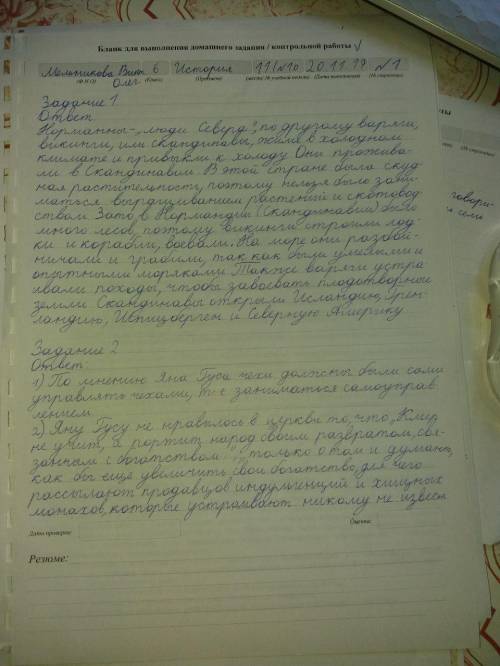 Бланк для выполнения домашнего задания / контрольной работы
Мельникова Вит. 6 История 11(№10 20.11.19 №1
Олег.
(Ф.И.О) (Класс) (Предмет) (Дата выполнения) (№ страницы)
Задание 1
Ответ:
Норманны-„люди Севера", по другому варяги,
викинги, или скандинавы, жили в холодном
климате и привыкли к холоду. Они прожива-
ли в Скандинавии. В этой стране была скуд-
ная растительность, поэтому нельзя было зани-
маться выращиванием растений и скотовод-
ством. Зато, в Нормандии (Скандинавии) было
много лесов, поэтому викинги строили лод-
ки и корабли, воевали. На море они разбой-
ничали и грабили, так как были умелыми и
опытными моряками. Также варяги устра
ивали походы, чтобы завоевать плодотворные
земли Скандинавы открыли Исландию, Грен-
ландию, Шпицберген и Северную Америку
Задание 2
Ответ:
1) По мнению Яна Гуса чехи должны были сами
управлять чехами, т-е заниматься самоуправ
лением.
2) Яну Гусу не нравилось в церкви то, что „Клир
не учит, а портит народ своим развратом, свя-
занным с богатством", только о том и думают,
как бы ещё увеличить свои богатства, для чего
рассылают продавцов индульгенций и хищных
монахов, которые устраивают никому не извест
Дата проверки: Оценка:
Резюме:
говори-
сели